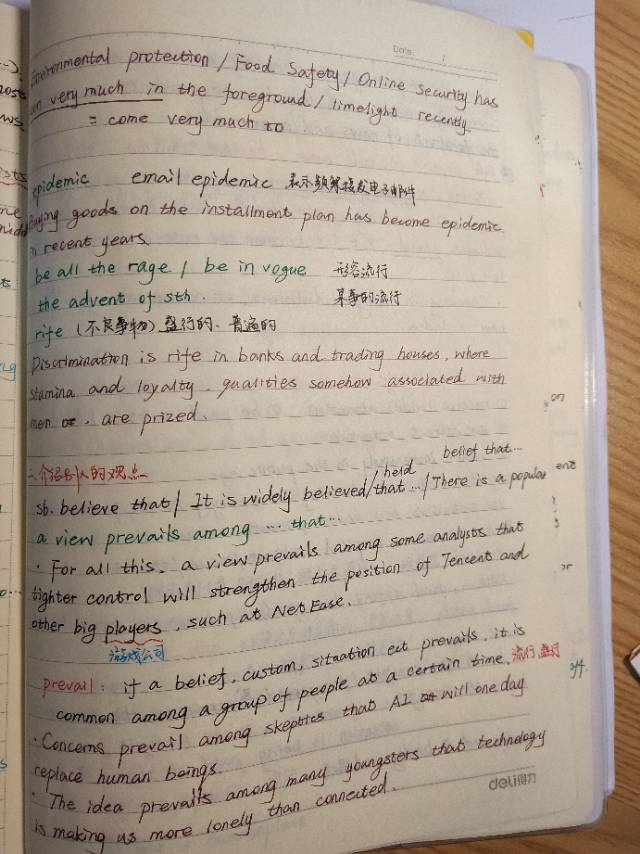 Date:
Environmental protection / Food Safety / Online security has
very much in the foreground / limelight recently.
= come very much to
epidemic email epidemic 表示频繁接发电子邮件
Buying goods on the installment plan has become epidemic
in recent years.
be all the rage / be in vogue 形容流行
the advent of sth. 某事的流行
rife (不良事物) 盛行的、普遍的
Discrimination is rife in banks and trading houses, where
stamina and loyalty, qualities somehow associated with
men, are prized.
二介绍别人的观点
belief that...
held
sb. believe that / It is widely believed / that... / There is a popular
a view prevails among ... that...
· For all this, a view prevails among some analysts that
tighter control will strengthen the position of Tencent and
other big players, such at NetEase.
游戏公司
prevail: if a belief, custom, situation ect prevails, it is
common among a group of people at a certain time. 流行 盛行
· Concerns prevail among skeptics that AI will one day
replace human beings.
· The idea prevails among many youngsters that technology
is making us more lonely than connected.
deli得力